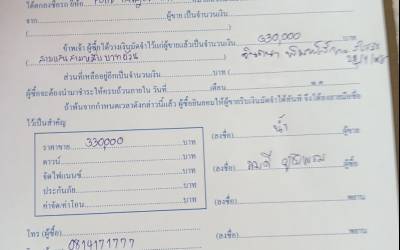 ได้ตกลงซื้อรถ ยี่ห้อ
จาก ผู้ขาย เป็นจำนวนเงิน
(
ข้าพเจ้า ผู้ซื้อได้วางเงินมัดจำไว้แก่ผู้ขายแล้วเป็นจำนวนเงิน 330,000
( สามแสนสามหมื่นบาทถ้วน
ส่วนที่เหลืออยู่อีกเป็นจำนวนเงิน บาท (
ผู้ซื้อจะต้องนำมาชำระให้ครบถ้วนภายใน วันที่ เดือน พ.ศ.
ถ้าพ้นจากกำหนดเวลาดังกล่าวนี้แล้ว ผู้ซื้อยินยอมให้ผู้ขายริบเงินมัดจำได้ทันที จึงได้ลงลายมือชื่อ
ไว้เป็นสำคัญ
ราคาขาย 330,000 บาท
ดาวน์ บาท
จัดไฟแนนซ์ บาท
ประกันภัย บาท
ค่าจัด/ค่าโอน บาท
(ลงชื่อ) น้ำ ผู้ขาย
(ลงชื่อ) สมดี ผู้ซื้อ
(ลงชื่อ) พยาน
(ลงชื่อ) พยาน
โทร (ผู้ซื้อ)
0814171777